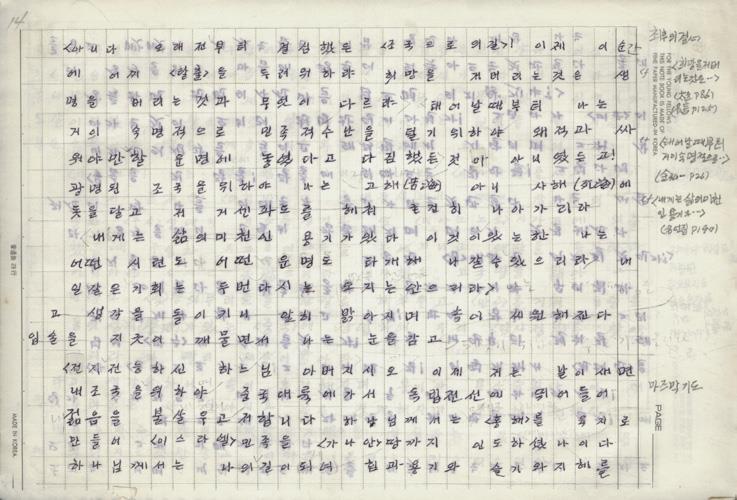 14
<아니다 오래전부터 결심했든 <조국으로의 길>! 이제 이 순간
에 어찌 <탈출>을 두려워하랴 희망을 저버리는것은 생
명을 버리는것과 무엇이 다르랴 <태어날때부터 나는
거의 숙명적으로 민족적수난을 떨기위하야 왜적과 싸
워야만할 운명에 놓였다고 다짐했든것이 아니였든고!
광명의 조국을위하야 나는 고해(苦海) 아니 사해(死海)에
돛을 달고 저 거센파도를 헤쳐 나아가리라
내게는 삶의 미친 용기가있다 이것이있는한 나는
어떤 시련도 어떤 운명도 타개해 나갈수있으리라> 내
일같은 기회는 두번다시는 오지는 않으리라>
고 생각을 돌이키니 맑아지며 속이 시원해진다
입술을 지긋이 깨물면서 나는 눈을감고
<전지전능하신 하느님 아버지시오 이제 저는 날이새면
내조국을위하야 중국대륙에가서 독립전선에 뛰어들어
젊음을 불살우고저합니다 하나님께서는 <홍해>를 육지로
만들어 <이스라엘>민족을 <가나안>땅까지 인도하셨나이다
하나님께서는 나의길이되여 힘과 용기와 슬기와지혜를
최후의 결심
<희망을저버
리는것은…>
<태어날때부터
거이숙명적으로…>
<내게는 삶의미친
용기가…>
마즈막기도
FOR THE YOUNG RECORD,
THIS NOTE BOOK IS MADE OF
FINE PAPER MANUFACTURED IN KOREA
MADE IN KOREA
PAGE